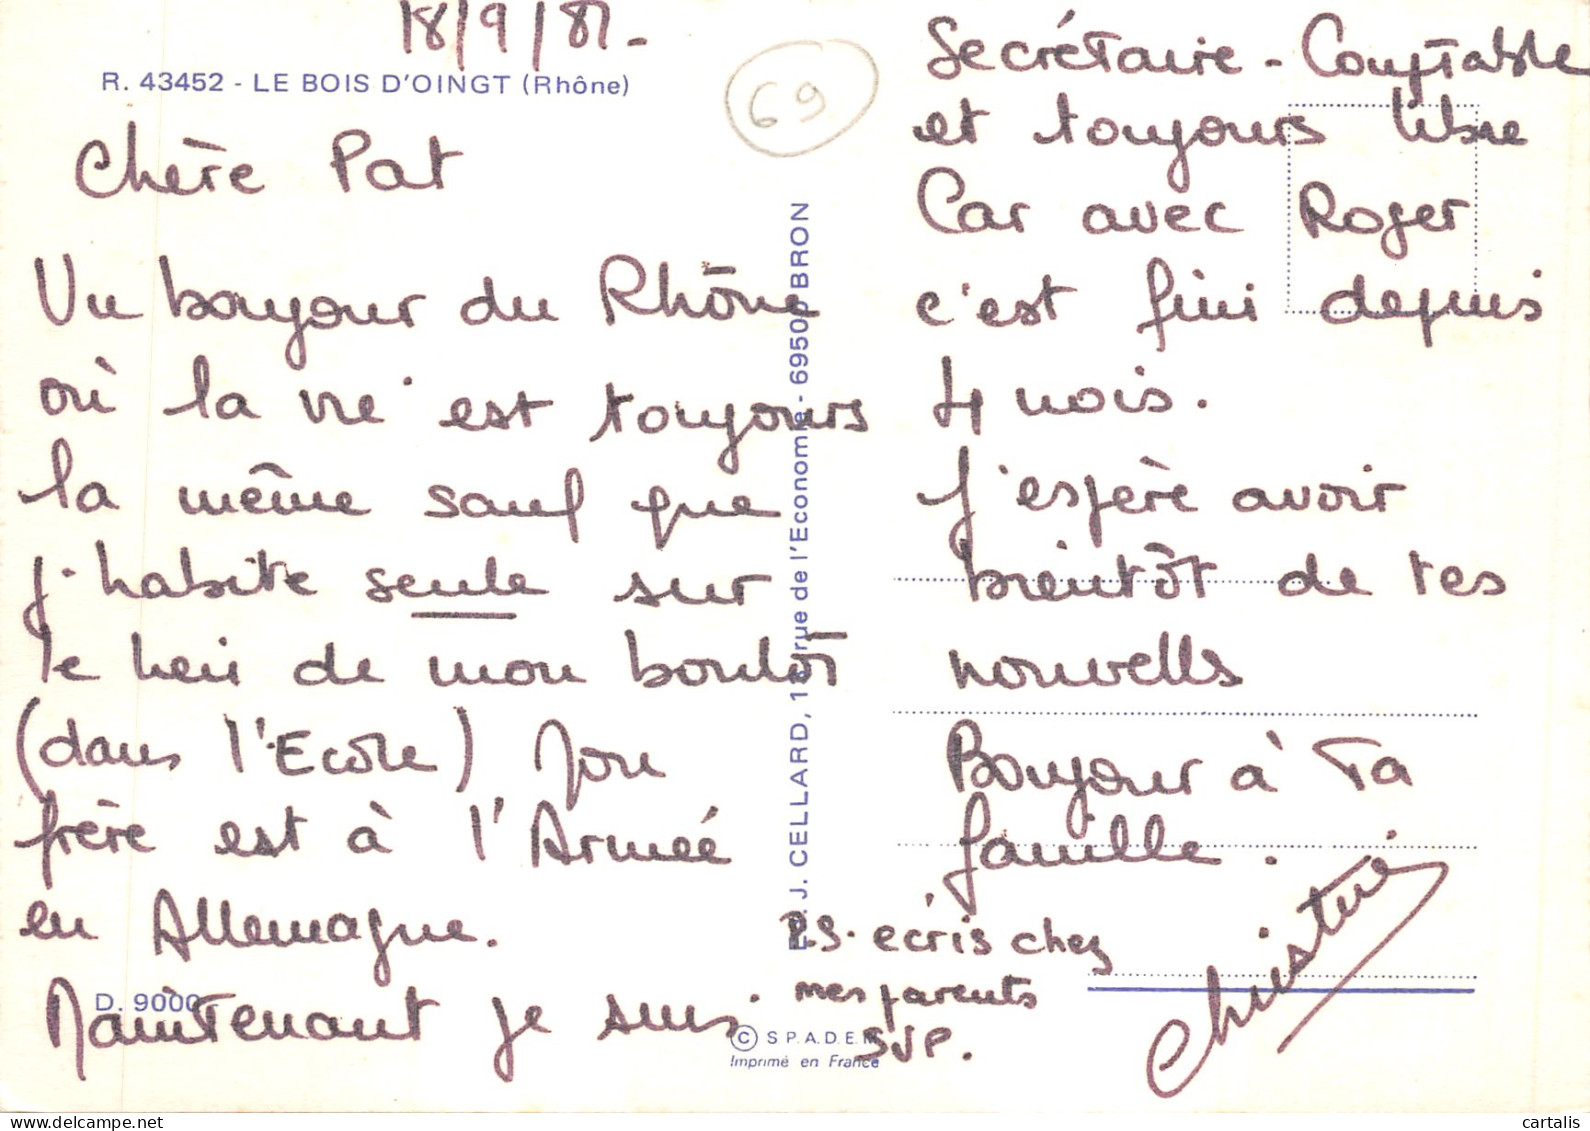 18/9/81-
R. 43452 - LE BOIS D'OINGT (Rhône)
69
Chère Pat
Un bonjour du Rhône
où la vie est toujours
la même sauf que
j'habite seule sur
le lieu de mon boulot
(dans l'Ecole) Mon
frère est à l'Armée
en Allemagne.
Maintenant je suis
D. 9000
Secrétaire - Comptable
et toujours libre
Car avec Roger
c'est fini depuis
4 mois.
J'espère avoir
bientôt de tes
nouvells
Bonjour à Ta
famille.
Christine
P.S. écris chez
mes parents
SVP.
J. CELLARD, rue de l'Economie - 69500 BRON
© S.P.A.D.E.M
Imprimé en France
cartalis